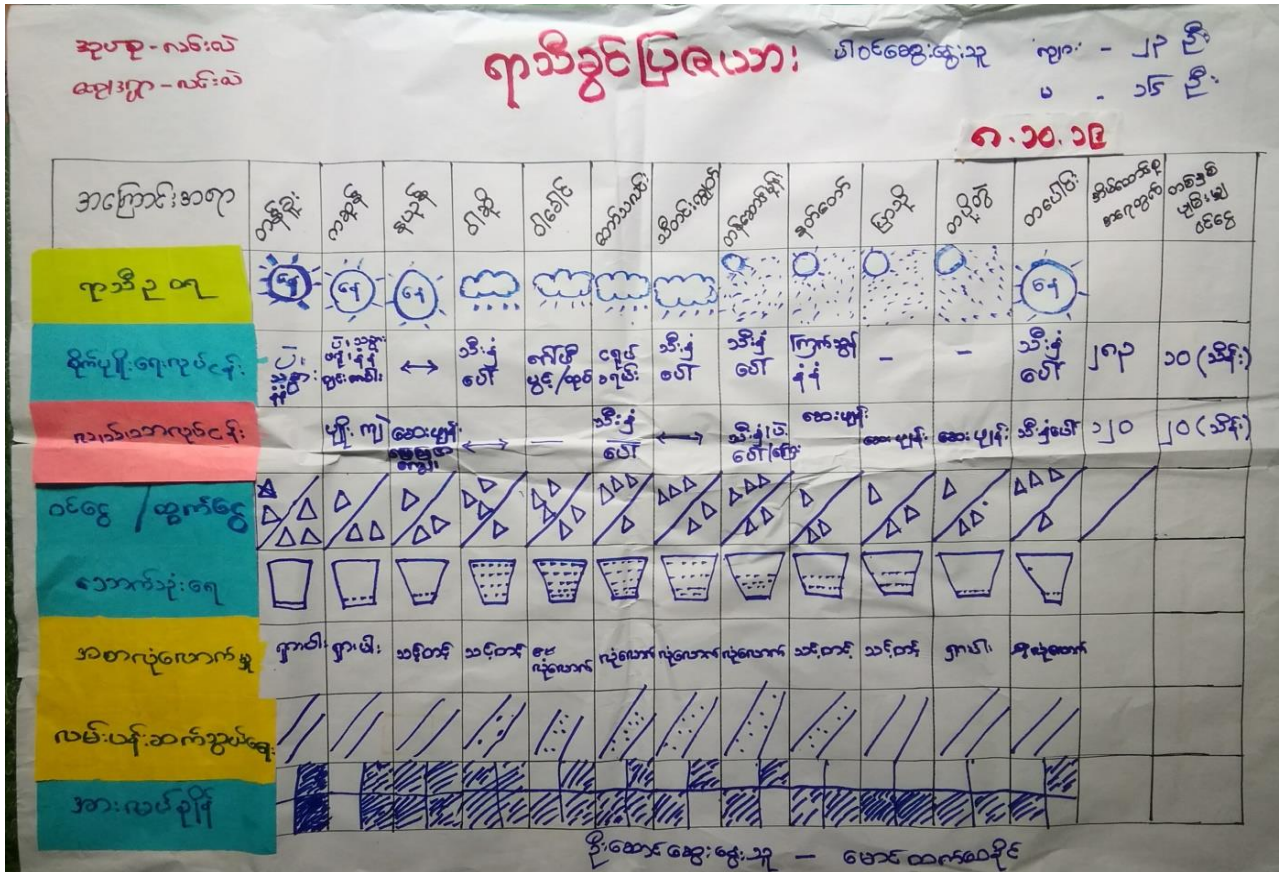 အုပ်စု - လင်းလဲ
ကျေးရွာ - လင်းလဲ
ရာသီခွင်ပြဇယား
ပါဝင်ဆွေးနွေးသူ ကျား - ၂၃ ဦး
မ - ၁၆ ဦး
၈.၁၀.၁၉
အကြောင်းအရာ တန်ခူး ကဆုန် နယုန် ဝါဆို ဝါခေါင် တော်သလင်း သီတင်းကျွတ် တန်ဆောင်မုန်း နတ်တော် ပြာသို တပို့တွဲ တပေါင်း အိမ်ထောင်စု အရေအတွက် တစ်နှစ် ပျမ်းမျှ ဝင်ငွေ
ရာသီဥတု နေ နေ နေ နေ
စိုက်ပျိုးရေးလုပ်ငန်း ပဲ သီးနှံ ပေါ် သီးနှံ ပေါ် သီးနှံ ပေါ် ကြက်သွန် - - သီးနှံ ပေါ် ၂၈၃ ၁၀ (သိန်း)
လုပ်ငန်း ပျိုး ကြဲ ဆေးဖျန်း သီးနှံ ပေါ် ဆေးဖျန်း ဆေးဖျန်း ဆေးဖျန်း သီးနှံပေါ် ၁၂၀ ၂၀ (သိန်း)
ဝင်ငွေ / ထွက်ငွေ
သောက်သုံးရေ
အစာလုံလောက်မှု ရှားပါး ရှားပါး သင့်တင့် သင့်တင့် လုံလောက် လုံလောက် လုံလောက် လုံလောက် သင့်တင့် သင့်တင့် ရှားပါး လုံလောက်
လမ်းပန်းဆက်သွယ်ရေး
အားလပ်ချိန်
ဦးဆောင်ဆွေးနွေးသူ - မောင်ထက်ဝေနိုင်